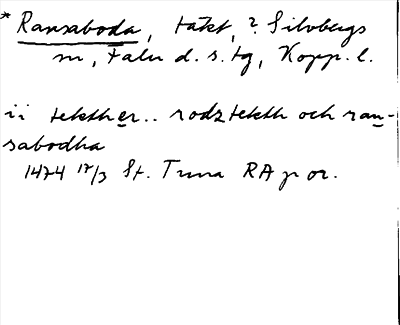 * Ransaboda, täkt, ? Silvbergs
sn, Falu d. s. tg, Kopp. l.
ii tekther.. rodztekth och ran-
sabodha
1474 17/3 St. Tuna RA p or.